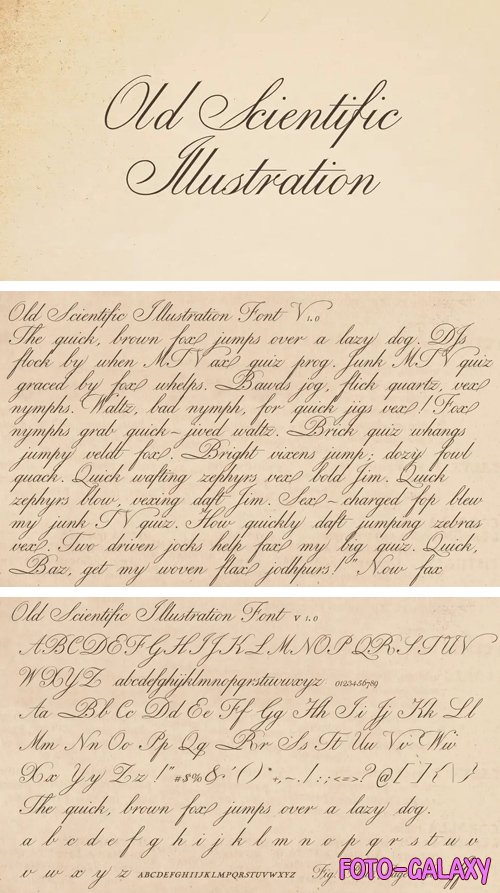 Old Scientific
Illustration
Old Scientific Illustration Font V 1.0
The quick, brown fox jumps over a lazy dog. DJs
flock by when MTV ax quiz prog. Junk MTV quiz
graced by fox whelps. Bawds jog, flick quartz, vex
nymphs. Waltz, bad nymph, for quick jigs vex! Fox
nymphs grab quick-jived waltz. Brick quiz whangs
jumpy veldt fox. Bright vixens jump; dozy fowl
quack. Quick wafting zephyrs vex bold Jim. Quick
zephyrs blow, vexing daft Jim. Sex-charged fop blew
my junk TV quiz. How quickly daft jumping zebras
vex. Two driven jocks help fax my big quiz. Quick,
Baz, get my woven flax jodhpurs! " Now fax
Old Scientific Illustration Font V 1.0
ABCDEFGHIJKLMNOPQRSTUV
WXYZ abcdefghijklmnopqrstuvwxyz 0123456789
Aa Bb Cc Dd Ee Ff Gg Hh Ii Jj Kk Ll
Mm Nn Oo Pp Qq Rr Ss Tt Uu Vv Ww
Xx Yy Zz !"#$%&'()*+,-./:;<=>?@[]{\}
The quick, brown fox jumps over a lazy dog.
a b c d e f g h i j k l m n o p q r s t u v
v w x y z ABCDEFGHIJKLMNOPQRSTUVWXYZ Fig.
FOTO-GALAXY